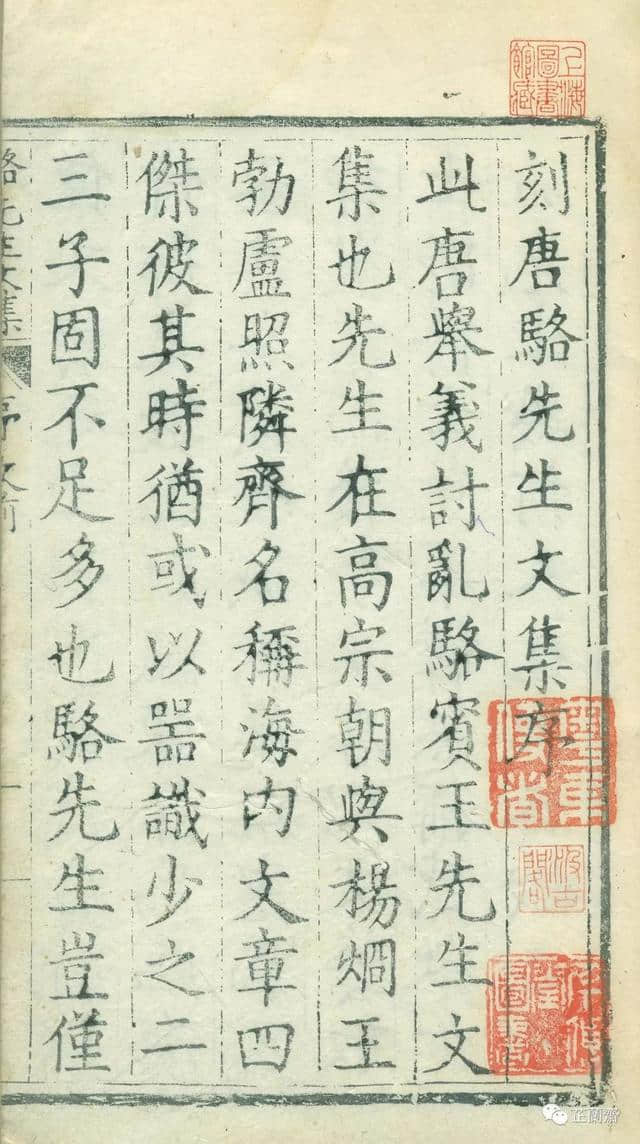 刻唐駱先生文集序
此唐舉義討亂駱賓王先生文
集也先生在高宗朝與楊炯王
勃盧照隣齊名稱海內文章四
傑彼其時猶或以器識少之二
三子固不足多也駱先生豈僅
駱先生文集 序
上海圖書館藏
汲古閣
芷蘭齋